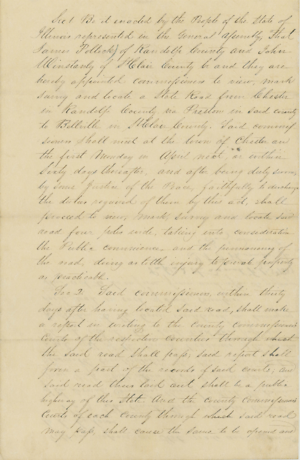 Sec 1 Be it enacted by the People of the State of
Illinois represented in the General Assembly, That
James Pollock of Randolph County and John
of St Clair County be and they are
hereby appointed commissioners to view, mark
survey and locate a State Road from Chester
in Randolph County via Preston in said county
to Belleville in St Clair County. Said commis-
sioners shall meet at the town of Chester on
the first Monday in April next, or within
Sixty days thereafter, and after being duly sworn
by some Justice of the Peace, faithfully to discharge
the duties required of them by this act, shall
proceed to view, mark survey and locate said
road four poles wide, taking into consideration
the Public convenience and the permanency of
the road, doing as little injury to private property
as practicable.
Sec 2. Said commissioners within thirty
days after having located said road, shall make
a report in writing to the county commissioners
courts of the respective counties through which
the said road shall pass, said report shall
form a part of the records of said courts, and
said road thus laid out shall be a public
highway of this State. And the county commissioners
courts of each county through which said road
may pass, shall cause the same to be opened and